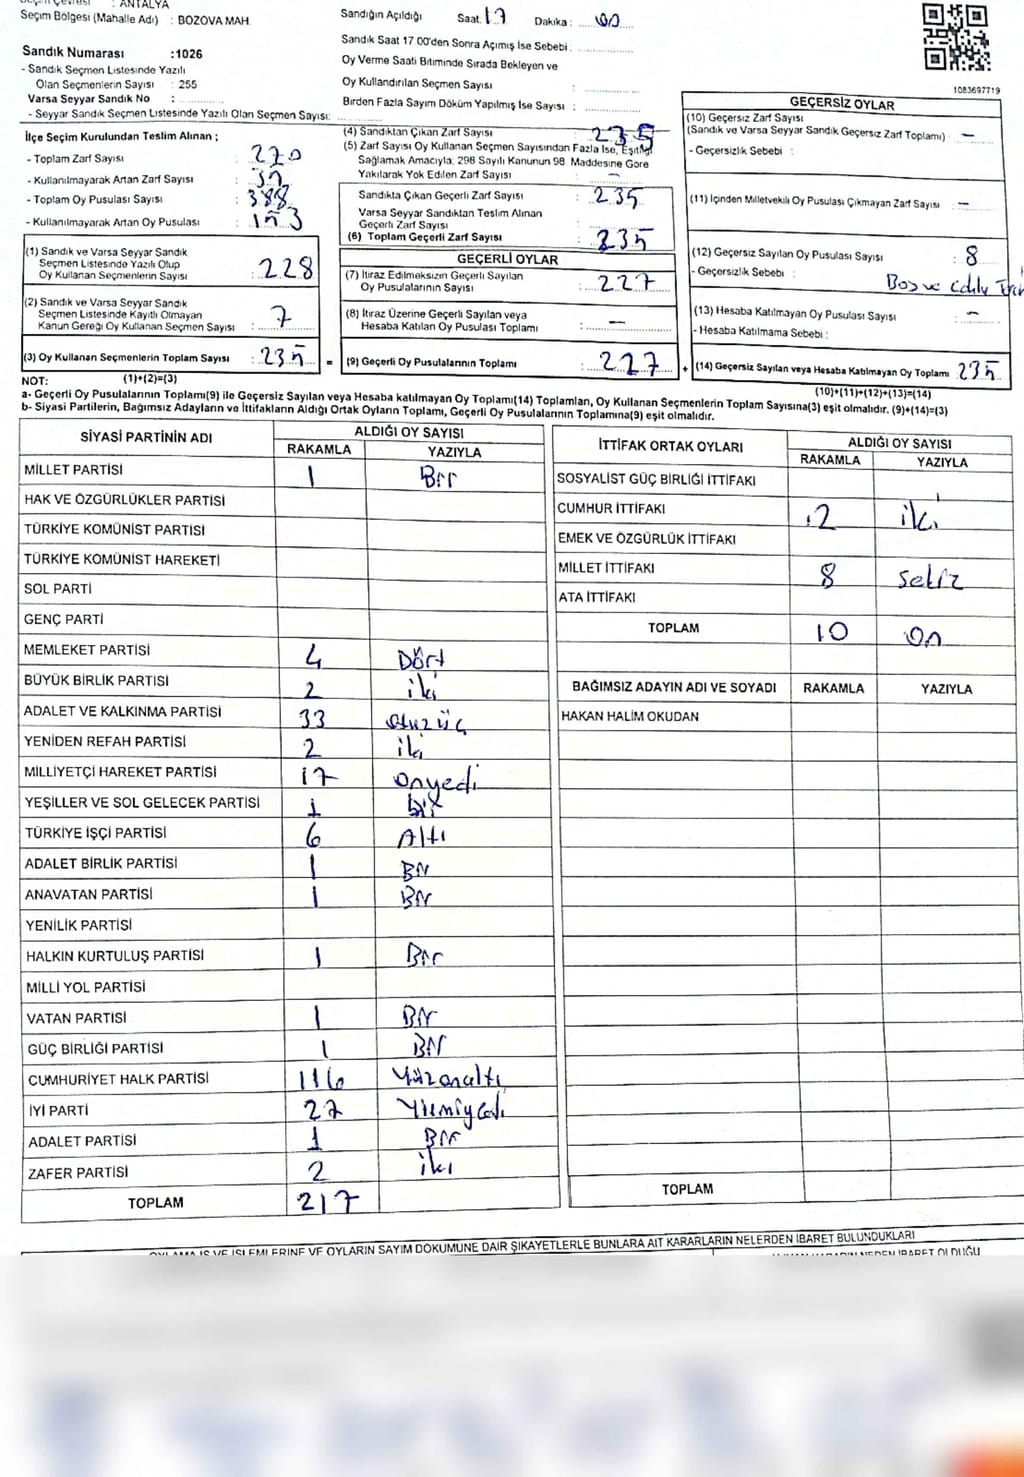 Seçim Çevresi : ANTALYA
Seçim Bölgesi (Mahalle Adı) : BOZOVA MAH.
Sandık Numarası :1026
- Sandık Seçmen Listesinde Yazılı
Olan Seçmenlerin Sayısı : 255
Varsa Seyyar Sandık No :
- Seyyar Sandık Seçmen Listesinde Yazılı Olan Seçmen Sayısı:
Sandığın Açıldığı Saat: 17 Dakika : 00
Sandık Saat 17:00'den Sonra Açımış İse Sebebi :
Oy Verme Saati Bitiminde Sırada Bekleyen ve
Oy Kullandırılan Seçmen Sayısı :
Birden Fazla Sayım Döküm Yapılmış İse Sayısı :
1083697719
İlçe Seçim Kurulundan Teslim Alınan ;
- Toplam Zarf Sayısı : 270
- Kullanılmayarak Artan Zarf Sayısı :
- Toplam Oy Pusulası Sayısı : 388
- Kullanılmayarak Artan Oy Pusulası : 153
(1) Sandık ve Varsa Seyyar Sandık
Seçmen Listesinde Yazılı Olup
Oy Kullanan Seçmenlerin Sayısı : 228
(2) Sandık ve Varsa Seyyar Sandık
Seçmen Listesinde Kayıtlı Olmayan
Kanun Gereği Oy Kullanan Seçmen Sayısı : 7
(3) Oy Kullanan Seçmenlerin Toplam Sayısı : 235 =
(4) Sandıktan Çıkan Zarf Sayısı : 235
(5) Zarf Sayısı Oy Kullanan Seçmen Sayısından Fazla İse, Eşitliği
Sağlamak Amacıyla, 298 Sayılı Kanunun 98 Maddesine Göre
Yakılarak Yok Edilen Zarf Sayısı : -
Sandıkta Çıkan Geçerli Zarf Sayısı : 235
Varsa Seyyar Sandıktan Teslim Alınan
Geçerli Zarf Sayısı :
(6) Toplam Geçerli Zarf Sayısı : 235
GEÇERLİ OYLAR
(7) İtiraz Edilmeksizin Geçerli Sayılan
Oy Pusulalarının Sayısı : 227
(8) İtiraz Üzerine Geçerli Sayılan veya
Hesaba Katılan Oy Pusulası Toplamı : -
(9) Geçerli Oy Pusulalarının Toplamı : 227 +
GEÇERSİZ OYLAR
(10) Geçersiz Zarf Sayısı
(Sandık ve Varsa Seyyar Sandık Geçersiz Zarf Toplamı) : -
- Geçersizlik Sebebi :
(11) İçinden Milletvekili Oy Pusulası Çıkmayan Zarf Sayısı : -
(12) Geçersiz Sayılan Oy Pusulası Sayısı : 8
- Geçersizlik Sebebi : Boş ve
(13) Hesaba Katılmayan Oy Pusulası Sayısı : -
- Hesaba Katılmama Sebebi :
(14) Geçersiz Sayılan veya Hesaba Katılmayan Oy Toplamı 235
NOT: (1)+(2)=(3) (10)+(11)+(12)+(13)=(14)
a- Geçerli Oy Pusulalarının Toplamı(9) ile Geçersiz Sayılan veya Hesaba katılmayan Oy Toplamı(14) Toplamları, Oy Kullanan Seçmenlerin Toplam Sayısına(3) eşit olmalıdır. (9)+(14)=(3)
b- Siyasi Partilerin, Bağımsız Adayların ve İttifakların Aldığı Ortak Oyların Toplamı, Geçerli Oy Pusulalarının Toplamına(9) eşit olmalıdır.
SİYASİ PARTİNİN ADI ALDIĞI OY SAYISI
RAKAMLA YAZIYLA
MİLLET PARTİSİ 1 Bir
HAK VE ÖZGÜRLÜKLER PARTİSİ
TÜRKİYE KOMÜNİST PARTİSİ
TÜRKİYE KOMÜNİST HAREKETİ
SOL PARTİ
GENÇ PARTİ
MEMLEKET PARTİSİ 4 Dört
BÜYÜK BİRLİK PARTİSİ 2 iki
ADALET VE KALKINMA PARTİSİ 33 otuzüç
YENİDEN REFAH PARTİSİ 2 iki
MİLLİYETÇİ HAREKET PARTİSİ 17 onyedi
YEŞİLLER VE SOL GELECEK PARTİSİ 1 bir
TÜRKİYE İŞÇİ PARTİSİ 6 Altı
ADALET BİRLİK PARTİSİ 1 Bir
ANAVATAN PARTİSİ 1 Bir
YENİLİK PARTİSİ
HALKIN KURTULUŞ PARTİSİ 1 Bir
MİLLİ YOL PARTİSİ
VATAN PARTİSİ 1 Bir
GÜÇ BİRLİĞİ PARTİSİ 1 Bir
CUMHURİYET HALK PARTİSİ 116 Yüzonaltı
İYİ PARTİ 27 Yirmiyedi
ADALET PARTİSİ 1 Bir
ZAFER PARTİSİ 2 iki
TOPLAM 217
İTTİFAK ORTAK OYLARI ALDIĞI OY SAYISI
RAKAMLA YAZIYLA
SOSYALİST GÜÇ BİRLİĞİ İTTİFAKI
CUMHUR İTTİFAKI 2 iki
EMEK VE ÖZGÜRLÜK İTTİFAKI
MİLLET İTTİFAKI 8 sekiz
ATA İTTİFAKI
TOPLAM 10 on
BAĞIMSIZ ADAYIN ADI VE SOYADI RAKAMLA YAZIYLA
HAKAN HALİM OKUDAN
TOPLAM
OYLAMA İŞ VE İŞLEMLERİNE VE OYLARIN SAYIM DÖKÜMÜNE DAİR ŞİKAYETLERLE BUNLARA AİT KARARLARIN NELERDEN İBARET BULUNDUKLARI